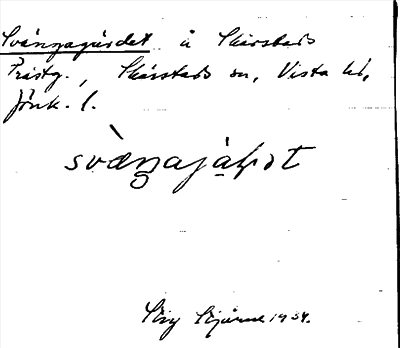 Svängagärdet å Skärstads
Prästg., Skärstads sn, Vista hd,
Jönk. l.
svæŋajäḷət
Stig Stjärne 1934.